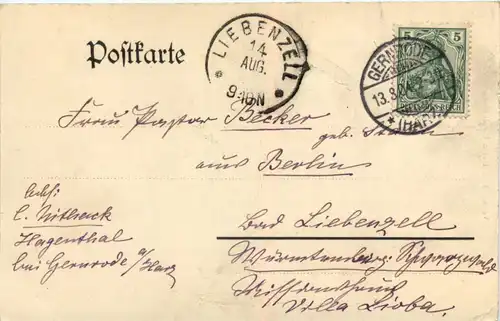 Postkarte
LIEBENZELL
14
AUG.
9-10N
5 5
GERNRODE
13.8.
(HARZ)
Frau Pastor Becker
geb.
aus Berlin
Bad Liebenzell
Württemberg. Schwarzwald
Missionshaus
Villa Lioba.
Abs:
C.
Hagenthal
bei Gernrode a/Harz